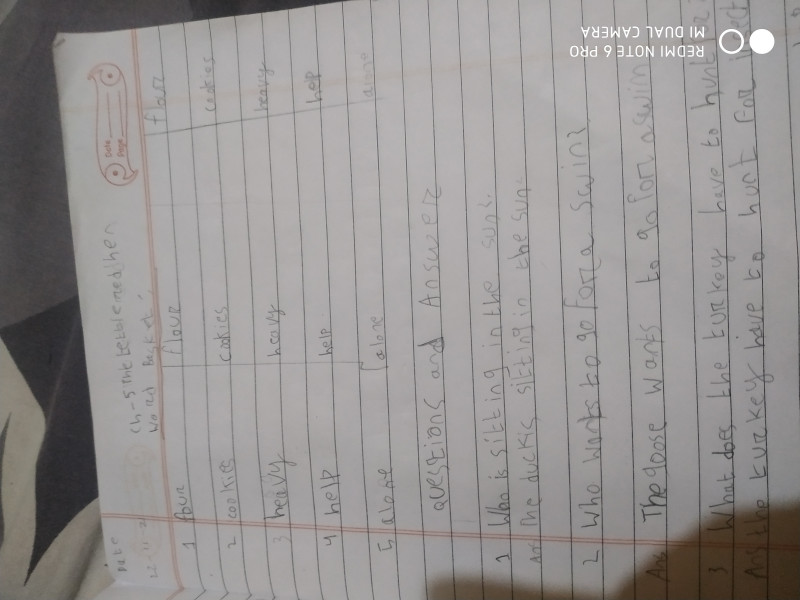 Date
Page
Date
Ch-5 The Lettle red hen
Word Basket:
1 flour flour flour
2 cookies cookies cookies
3 heavy heavy heavy
4 help help help
5 alone alone alone
questions and Answer
1 Who is sitting in the sun?
Ans The duck is sitting in the sun.
2 Who wants to go for a swim?
Ans The goose wants to go for a swim
3 What does the turkey have to hunt
Ans the turkey have to hunt for
REDMI NOTE 6 PRO
MI DUAL CAMERA